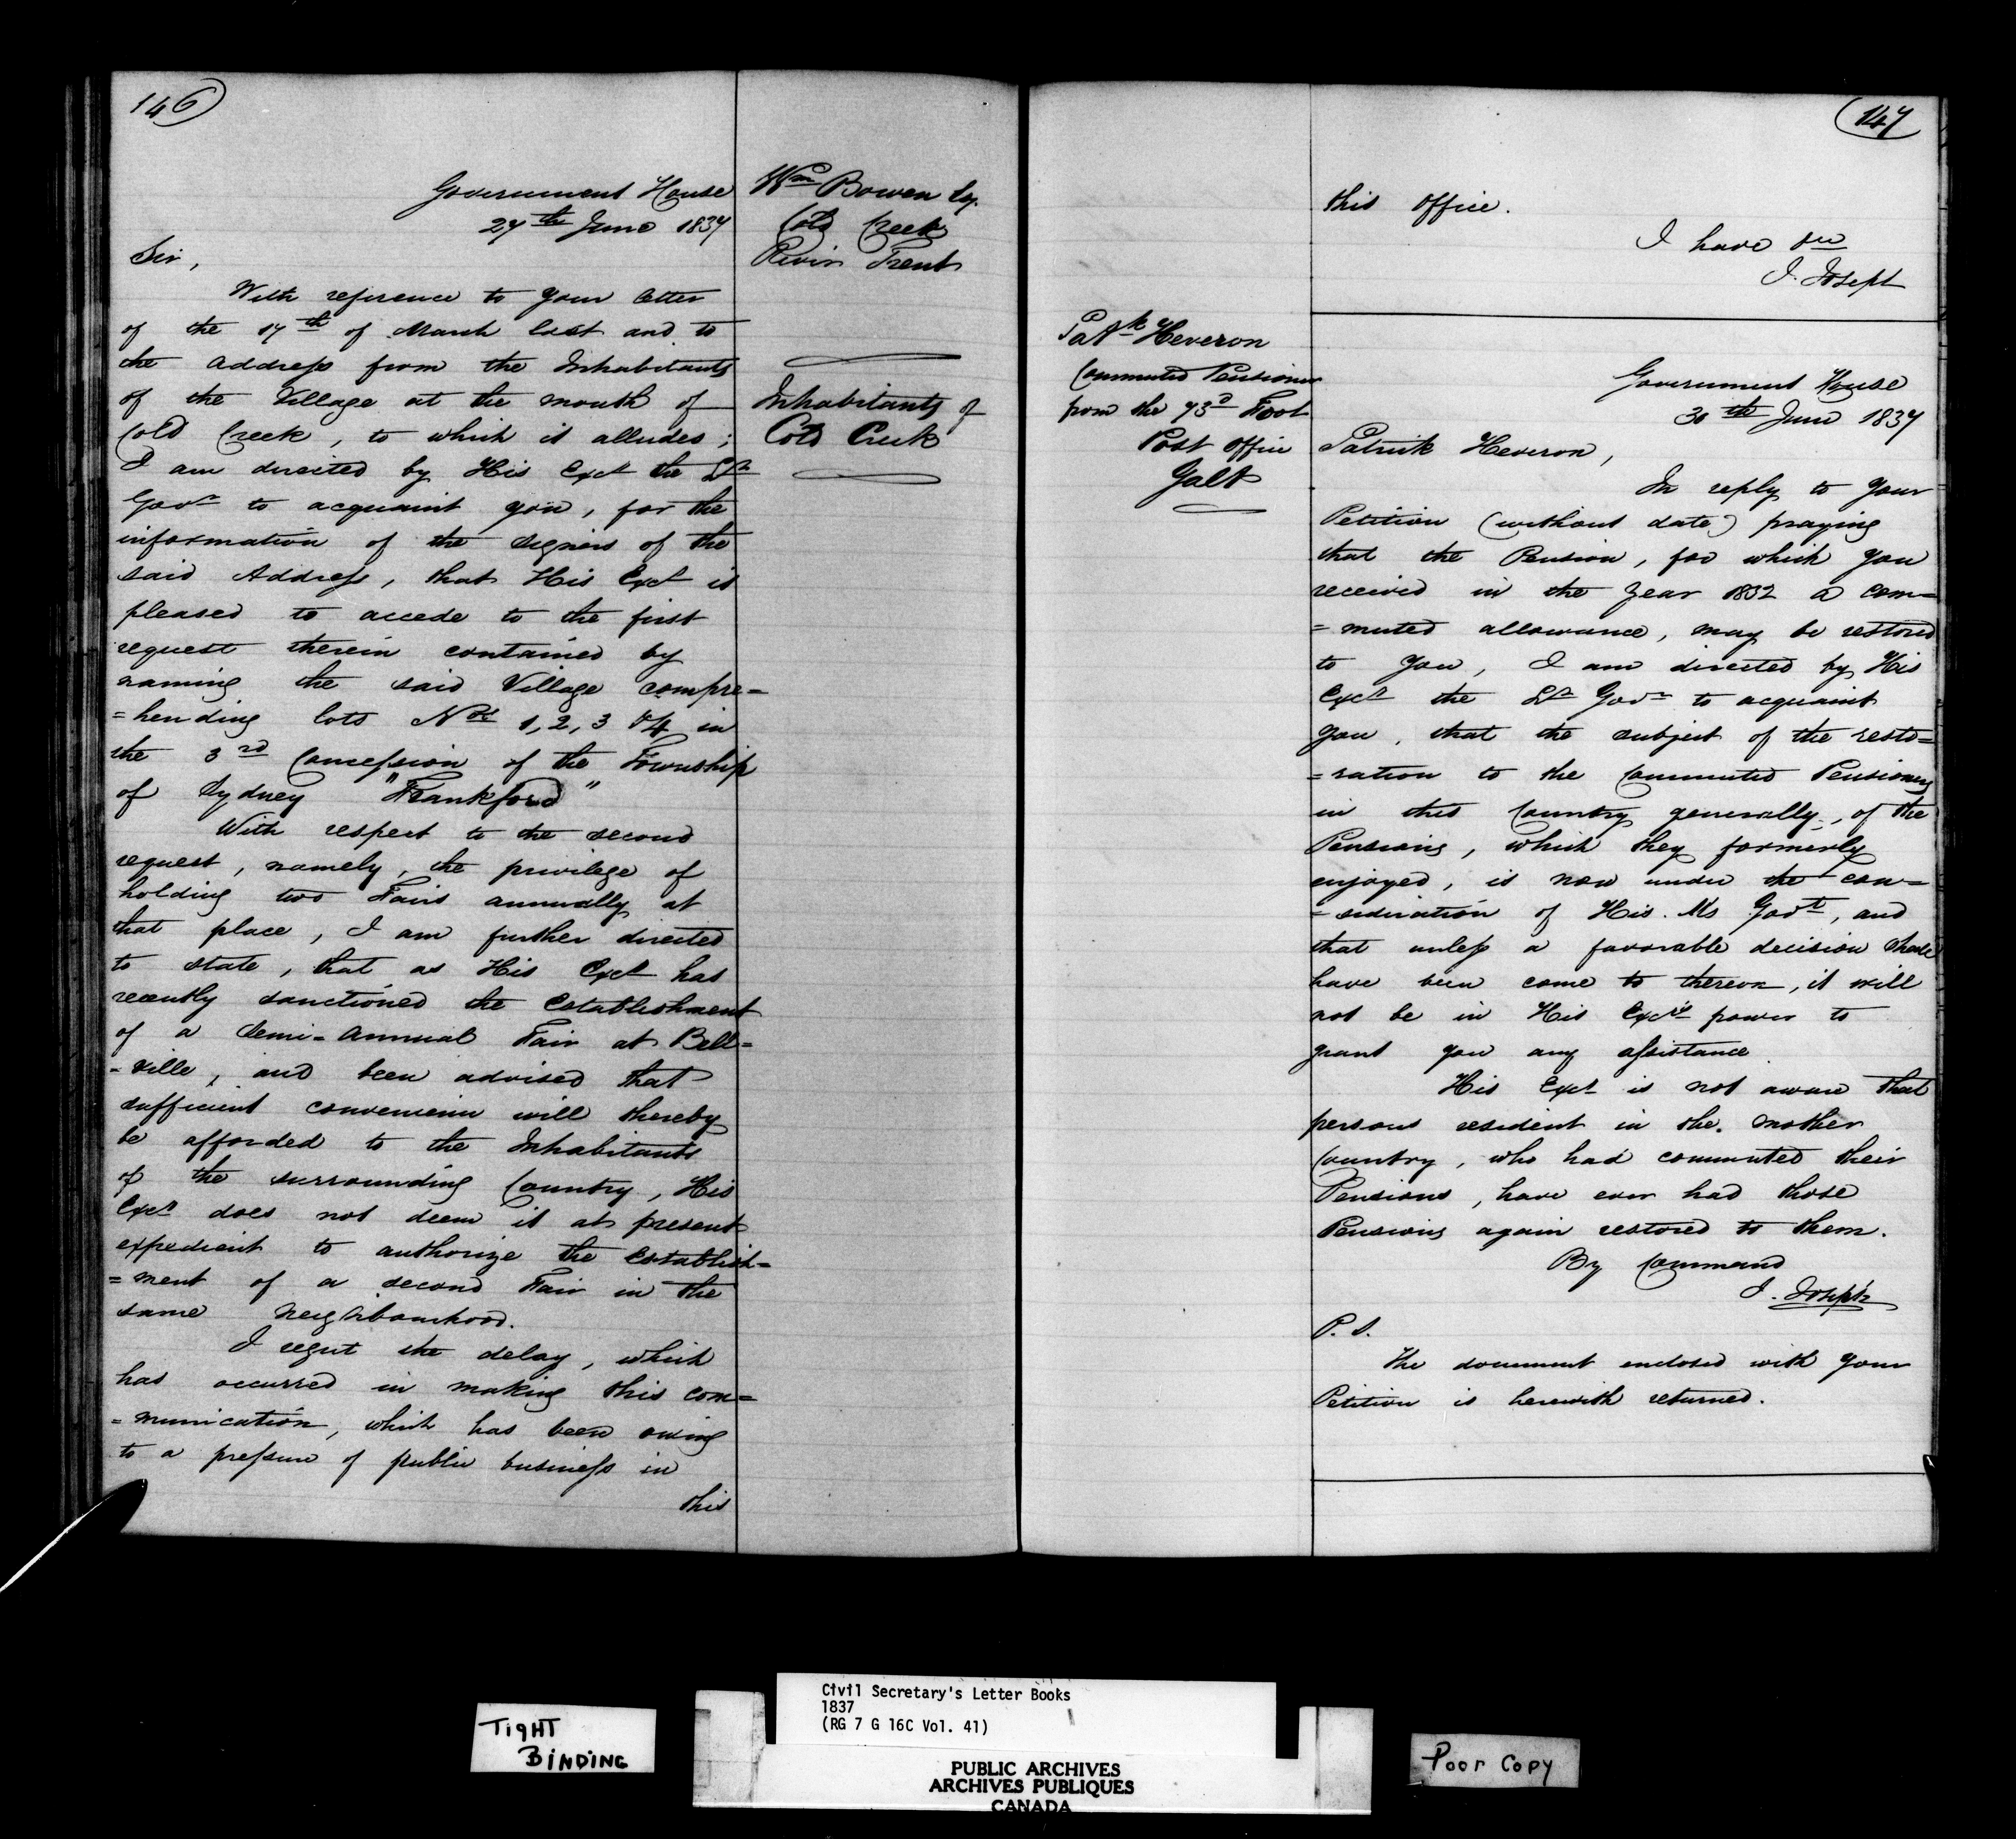 146
Government House
27th June 1837
Wm Bowen Esq.
Cold Creek
River Trent
Sir,
With reference to your letter
of the 17th of March last and to
the Address from the Inhabitants
of the Village at the mouth of
Cold Creek, to which it alludes;
Inhabitants of
Cold Creek
I am directed by His Excy the Lt
Govr to acquaint you, for the
information of the signers of the
said Address, that His Excy is
pleased to accede to the first
request therein contained by
naming the said Village compre=
=hending lots Nos 1, 2, 3 & 4 in
the 3rd Concession of the Township
of Sydney "Frankford"
With respect to the second
request, namely, the privilege of
holding two Fairs annually at
that place, I am further directed
to state, that as His Excy has
recently sanctioned the Establishment
of a Semi-Annual Fair at Bell=
=ville, and been advised that
sufficient convenience will thereby
be afforded to the Inhabitants
of the surrounding Country, His
Excy does not deem it at present
expedient to authorize the Establish=
=ment of a second Fair in the
same Neighbourhood.
I regret the delay, which
has occurred in making this com=
=munication, which has been owing
to a pressure of public business in
this
147
this office.
I have &c
J. Joseph
Patk Heveron
Commuted Pensioner
from the 73d Foot
Post Office
Galt
Government House
30th June 1837
Patrick Heveron,
In reply to your
Petition (without date) praying
that the Pension, for which you
received in the year 1832 a com=
=muted allowance, may be restored
to you, I am directed by His
Excy the Lt Govr to acquaint
you, that the subject of the resto=
=ration to the Commuted Pensioners
in this Country generally, of the
Pensions, which they formerly
enjoyed, is now under the con=
=sideration of His Ms Govt, and
that unless a favorable decision shall
have been come to thereon, it will
not be in His Excys power to
grant you any assistance.
His Excy is not aware that
persons resident in the mother
Country, who had commuted their
Pensions, have ever had those
Pensions again restored to them.
By Command
J. Joseph
P.S.
The document enclosed with your
Petition is herewith returned.
TIGHT
BINDING
Civil Secretary's Letter Books
1837
(RG 7 G 16C Vol. 41)
PUBLIC ARCHIVES
ARCHIVES PUBLIQUES
CANADA
Poor Copy